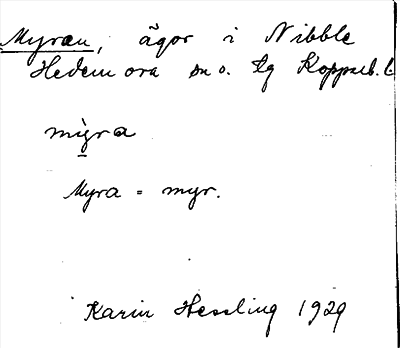 Myran, ägor i Nibble
Hedemora sn o. tg Kopparb. l
mi̱gra
Myra = myr.
Karin Hessling 1929